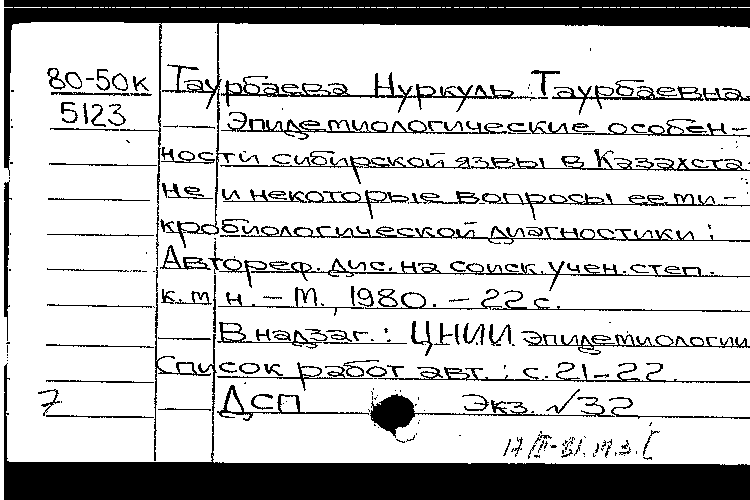 80-50к Таурбаева Нуркуль Таурбаевна
5123 Эпидемиологические особен-
ности сибирской язвы в Казахста-
не и некоторые вопросы ее ми-
кробиологической диагностики:
Автореф. дис. на соиск. учен. степ.
к. м. н. - М., 1980. - 22 с.
В надзаг.: ЦНИИ эпидемиологии
Список работ авт.: с. 21-22.
7 ДСП Экз. №32